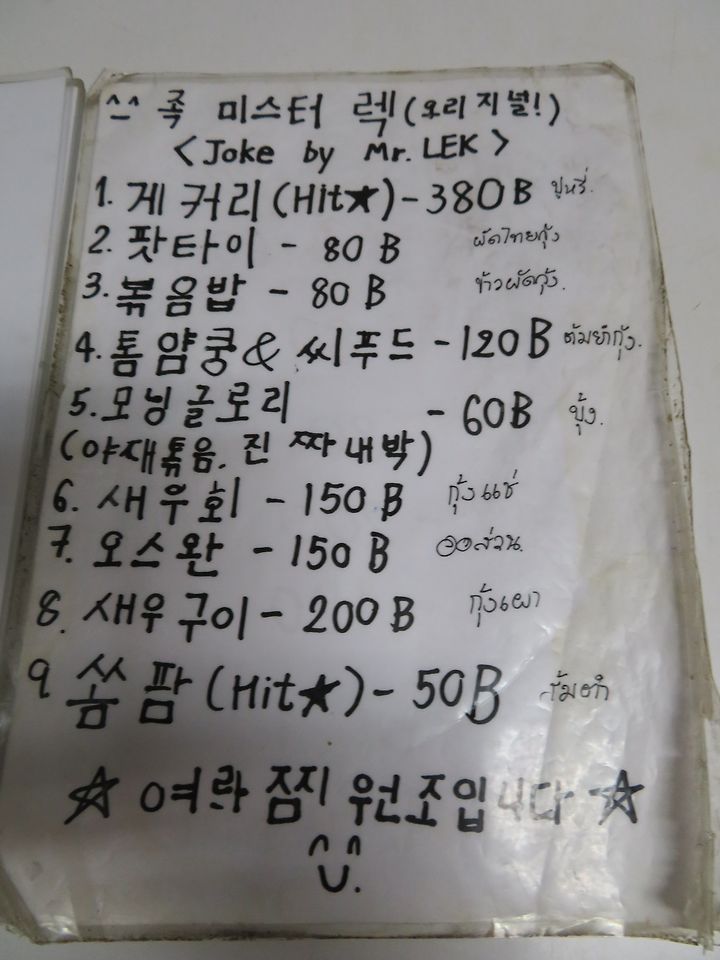 ^-^ 쪽 미스터 렉(오리지널!)
<Joke by Mr. LEK>
1. 게 커리(Hit★)-380B ปูหรี่.
2. 팟타이 - 80 B ผัดไทยกุ้ง
3. 볶음밥 - 80 B ข้าวผัดกุ้ง.
4. 톰얌쿵& 씨푸드 -120B ต้มยำกุ้ง.
5. 모닝글로리 - 60B บุ้ง.
(야채볶음. 진 짜 내 박)
6. 새우회 - 150 B กุ้งแช่
7. 오스완 - 150 B ออส่วน.
8. 새우 구이 - 200 B กุ้งเผา
9 쏨 땀 (Hit★) - 50B ส้มตำ
☆ 여롸 찜지 원조입니다 ☆